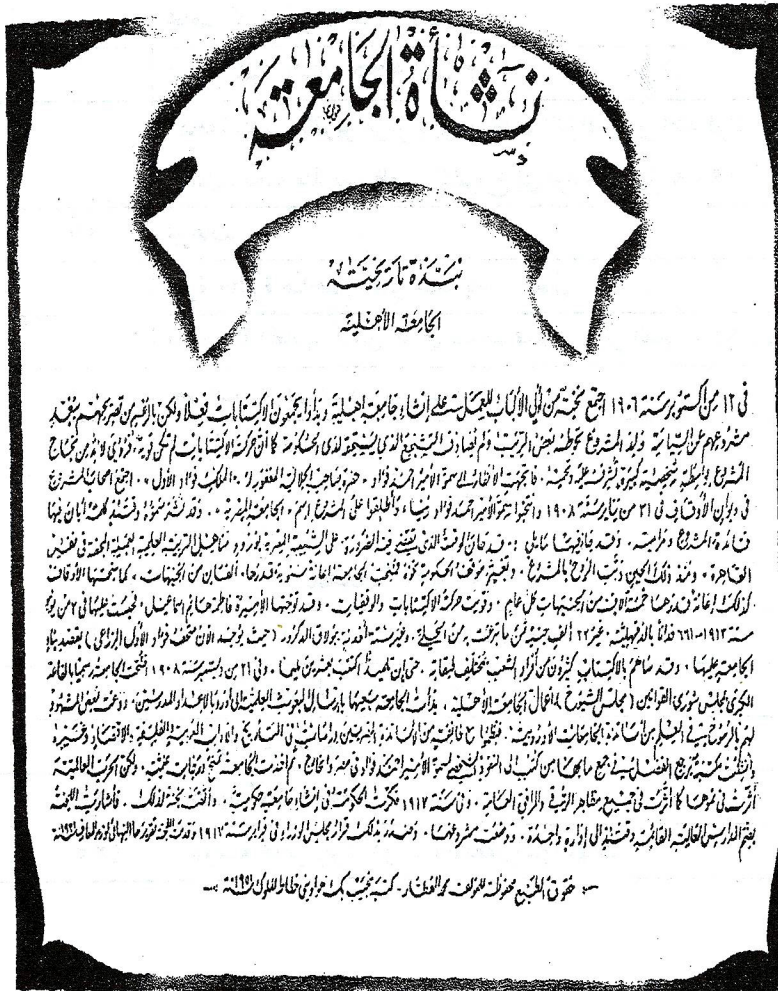 نشأة الجامعة
نبذة تاريخية
الجامعة الأهلية
في ١٢ من أكتوبر سنة ١٩٠٦ اجتمع نخبة من أولي الألباب للعمل على إنشاء جامعة أهلية وبدأوا يجمعون الاكتتابات فعلاً ولكن بالرغم من تصريحهم ببعد
مشروعهم عن السياسة ولد المشروع تحوطه بعض الريب ولم يصادف التشجيع الذي يستحقه لدى الحكومة كما أن حركة الاكتتابات لم تكن قوية. فرؤي لابد من نجاح
المشروع بواسطة شخصية كبيرة تشرف عليه وتحميه. فاتجهت الأنظار إلى سمو الأمير أحمد فؤاد. حضرة صاحب الجلالة المغفور له الملك فؤاد الأول. اجتمع أصحاب المشروع
في ديوان الأوقاف في ٣١ من يناير سنة ١٩٠٨ وانتخبوا سمو الأمير أحمد فؤاد رئيساً وأطلقوا على المشروع اسم الجامعة المصرية. وقد نشر سموه وقتئذ كلمة أبان فيها
فائدة المشروع ومراميه. وقد جاء فيها ما يلي: قد حان الوقت الذي تقضي فيه الضرورة على الشبيبة المصرية
القاهرة. ومنذ ذلك الحين دبت الروح بالمشروع. وتغير موقف الحكومة نحوه فمنحت الجامعة إعانة سنوية قدرها ألفان من الجنيهات. كما منحتها الأوقاف
كذلك إعانة قدرها خمسة آلاف من الجنيهات كل عام. وقويت حركة الاكتتابات والوقفيات. وقد توجتها الأميرة فاطمة هانم اسماعيل. فحبست عليها في ٢ من يونيه
سنة ١٩١٣ - ٦٦١ فداناً بالدقهلية غير ٢٢ ألف جنيه ثمن ما تبرعت به من الحلي. وغير ستة أفدنة ببولاق الدكرور (حيث يوجد الآن متحف فؤاد الأول الزراعي) بقصد بناء
الجامعة عليها. وقد ساهم بالاكتتاب كثيرون من أفراد الشعب بمختلف طبقاته. حتى إن تلميذاً اكتتب بعشرين مليما. وفي ٢١ من ديسمبر سنة ١٩٠٨ افتتحت الجامعة رسمياً بالقاعة
الكبرى لمجلس شورى القوانين (مجلس الشيوخ) أعمال الجامعة الأهلية. بدأت الجامعة سعيها بإرسال البعوث العلمية إلى أوربا لإعداد المدرسين. ودعت بعض المشهود
لهم بالرسوخ في العلم من أساتذة الجامعات الأوروبية. فنظموا مع طائفة من الأساتذة المصريين دراسات في التاريخ وآداب العربية والفلسفة والاقتصاد وغيرها
وأنشأت مكتبة يرجع الفضل في جمع ما بها من كتب إلى النفوذ الشخصي لسمو الأمير أحمد فؤاد في مصر والخارج. ثم أخذت الجامعة تمنح درجات علمية. ولكن الحرب العالمية
أثرت في نموها كما أثرت في جميع مظاهر الرقي والمرافق العامة. وفي سنة ١٩١٧ فكرت الحكومة في إنشاء جامعة حكومية. وألفت لجنة لذلك. فأشارت اللجنة
بضم المدارس العالية القائمة وقتئذ إلى إدارة واحدة. ووضعت مشروعها. وصدر بذلك قرار مجلس الوزراء في فبراير سنة ١٩١٧ وقدمت اللجنة تقريرها النهائي
حقوق الطبع محفوظة للمؤلف محمد العطار - كتبه نجيب بك هواويني خطاط الملوك سنة ١٩٥١